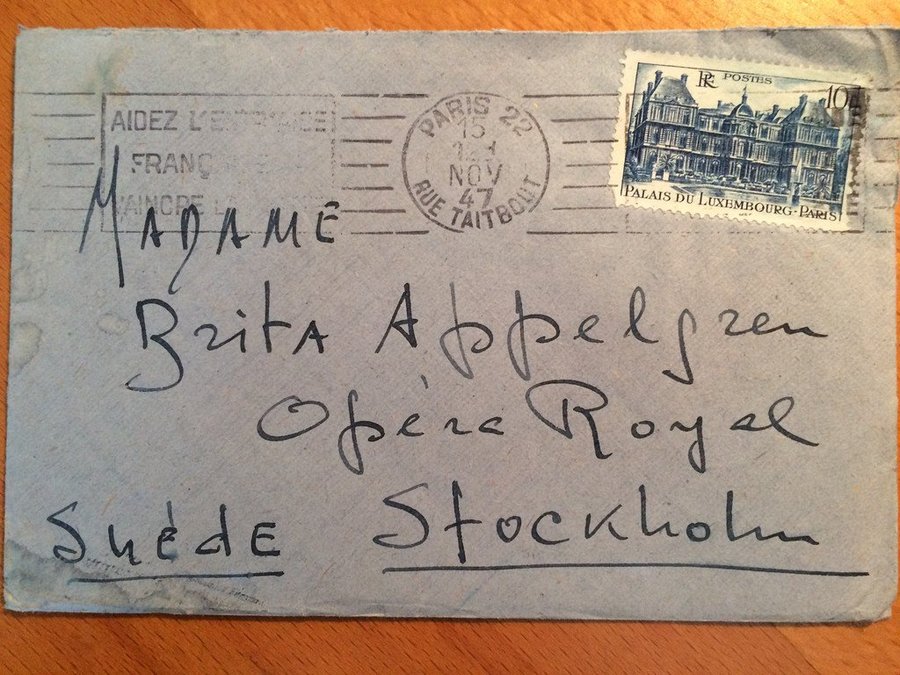 AIDEZ
FRANÇ
PARIS 22
15
NOV
47
RUE TAITBOUT
RF POSTES
10
PALAIS DU LUXEMBOURG-PARIS
MADAME
Brita Appelgren
Opéra Royal
Suéde Stockholm